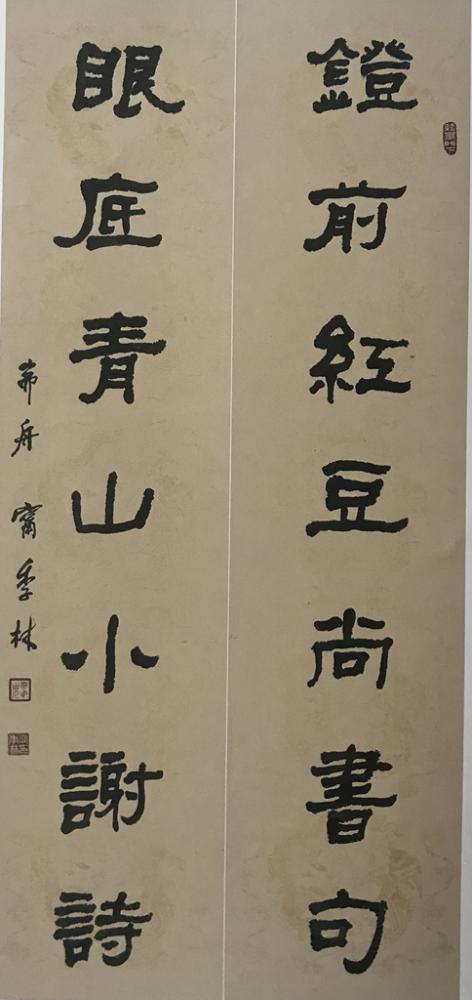 鐙前紅豆尚書句
眼底青山小謝詩
甯季林